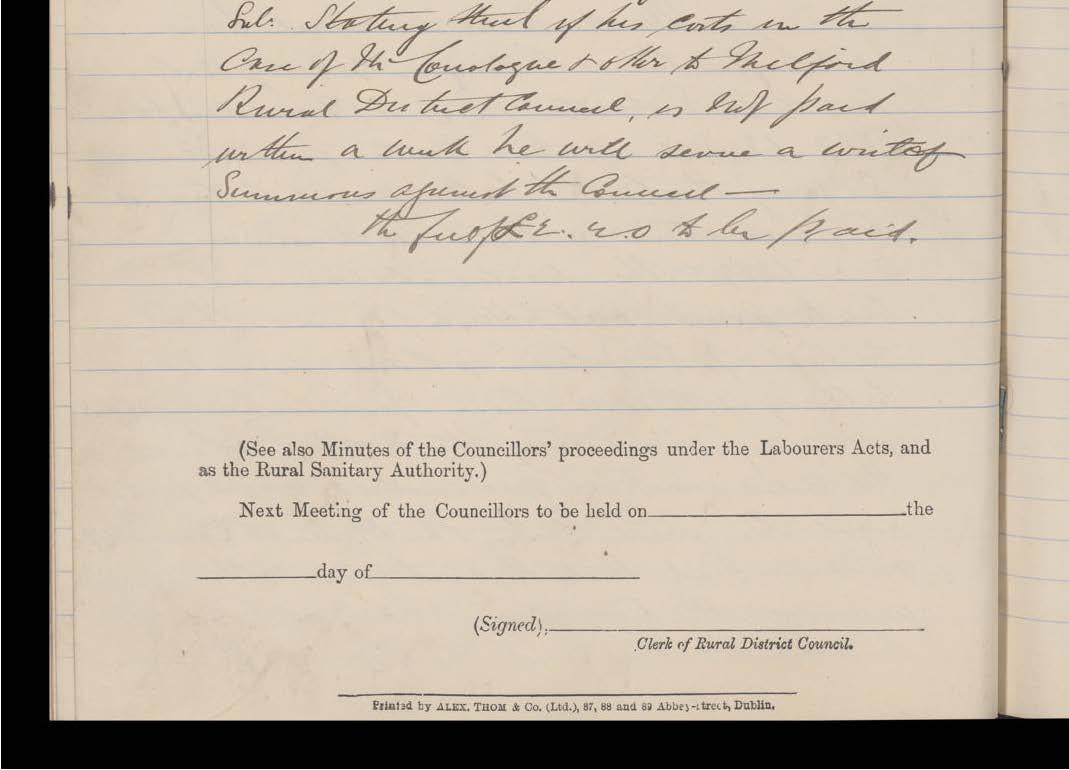 Sol. Stating that if his costs in the
Case of Mr Conologue & other to Milford
Rural District Council, is not paid
within a week he will serve a writ of
Summons against the Council —
the to be paid.
(See also Minutes of the Councillors' proceedings under the Labourers Acts, and
as the Rural Sanitary Authority.)
Next Meeting of the Councillors to be held on the
day of
(Signed),
Clerk of Rural District Council.
Printed by ALEX. THOM & Co. (Ltd.), 87, 88 and 89 Abbey-street, Dublin.